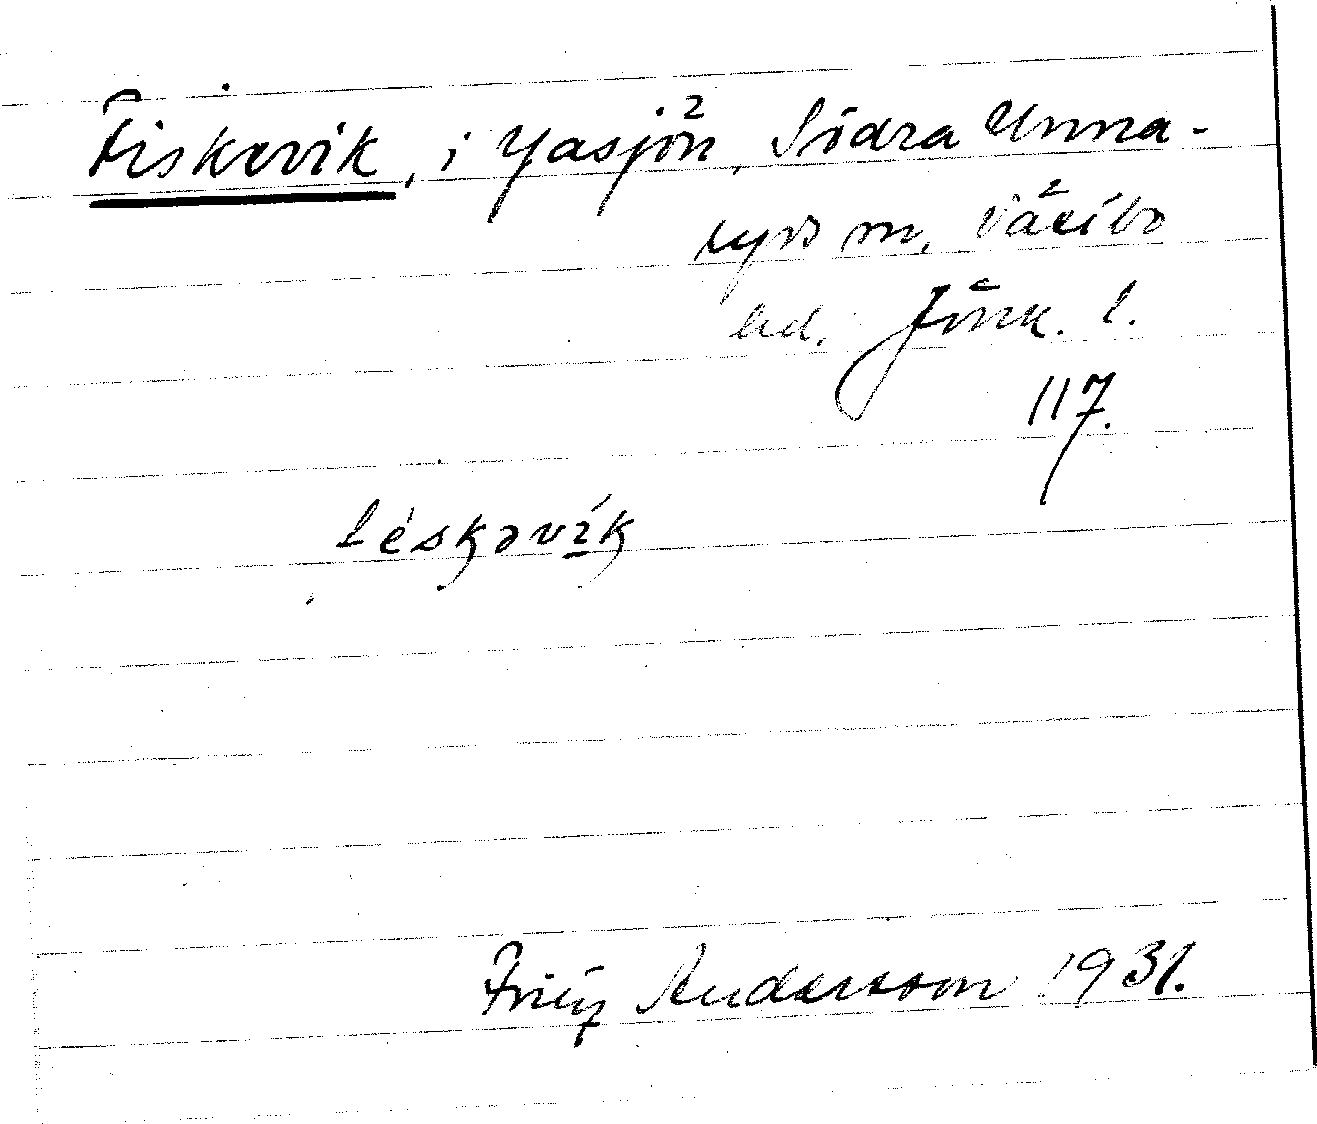 Fiskevik, i Yasjön, Södra Unna-
ryds m. Västbo
hd. Jönk. l.
117.
féskəvík
Fritz Andersson 1931.